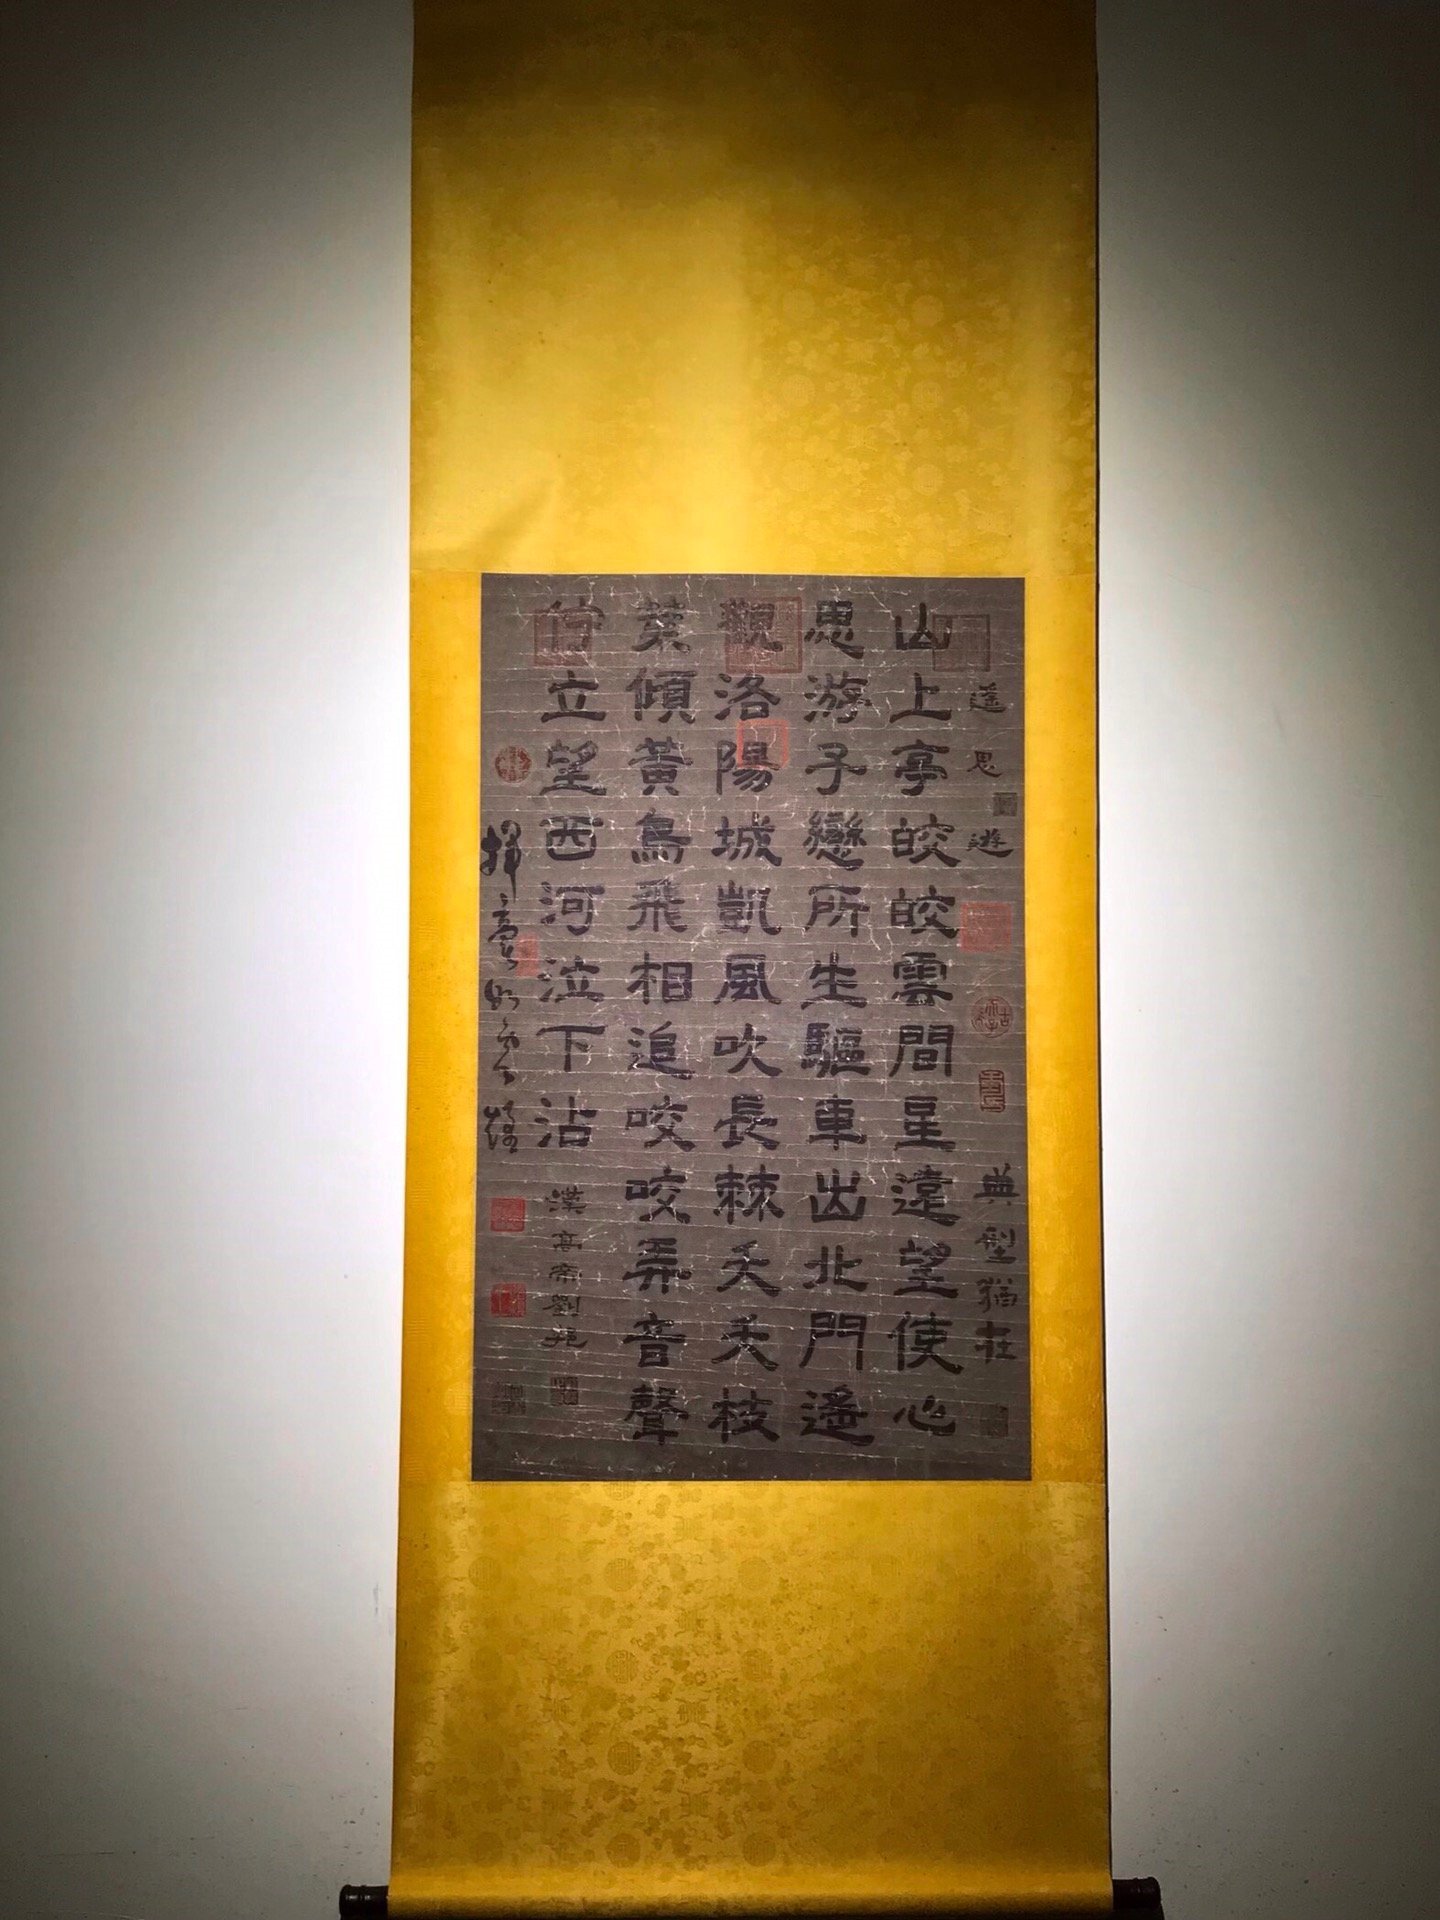 遙思遊
典型猶在
山上亭皎皎雲間星遠望使心
思游子戀所生驅車出北門遙
觀洛陽城凱風吹長棘夭夭枝
葉傾黃鳥飛相追咬咬弄音聲
佇立望西河泣下沾
漢高帝劉
揮毫如雲煙